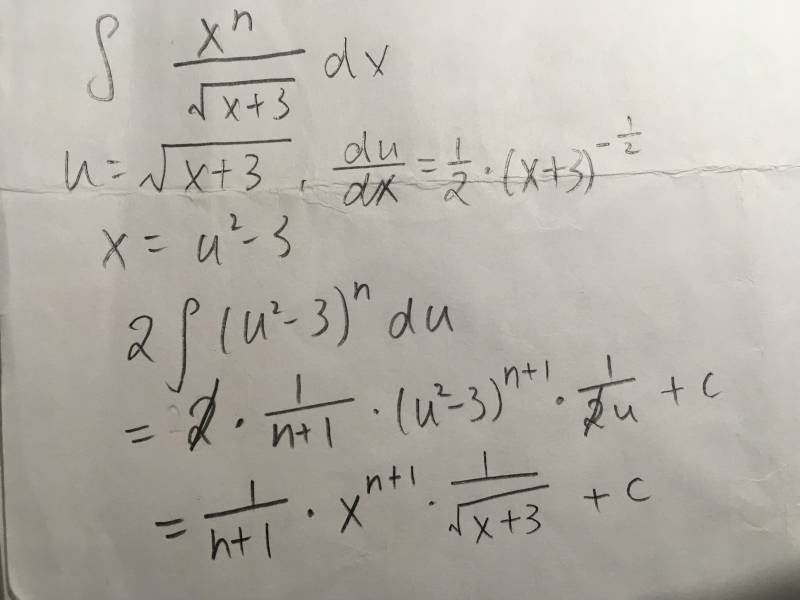 ∫ xⁿ/√(x+3) dx
u = √(x+3) , du/dx = 1/2 · (x+3)^(-1/2)
x = u² - 3
2 ∫ (u² - 3)ⁿ du
= 2 · 1/(n+1) · (u² - 3)^(n+1) · 1/(2u) + c
= 1/(n+1) · x^(n+1) · 1/√(x+3) + c